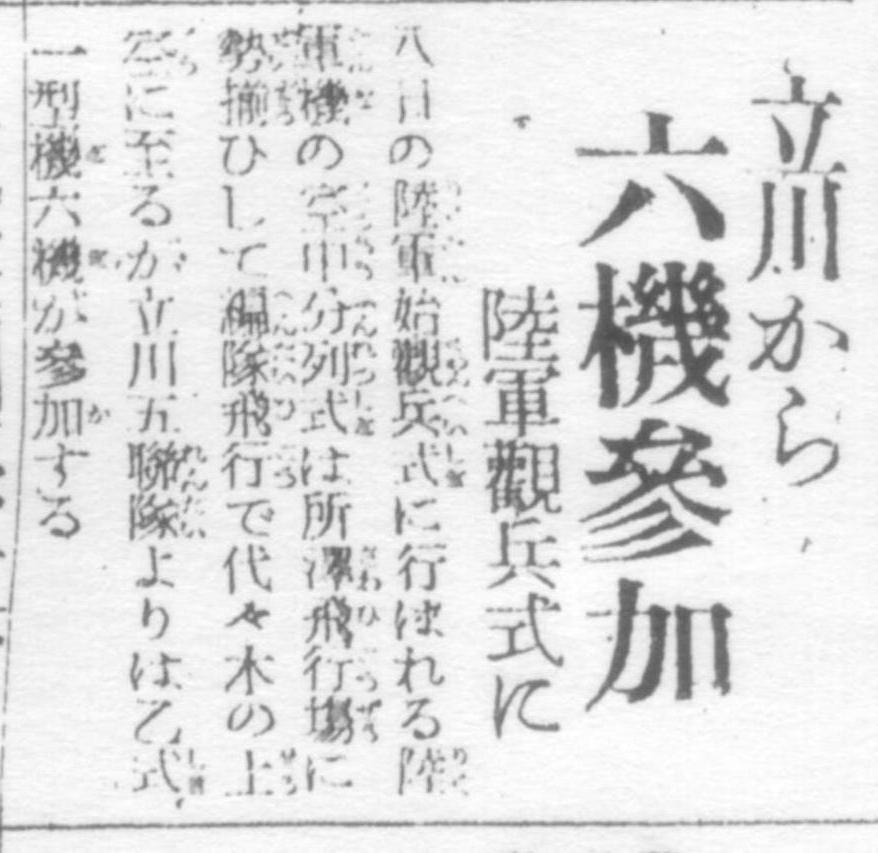 立川から
六機參加
陸軍觀兵式に
八日の陸軍始觀兵式に行はれる陸
軍機の空中分列式は所澤飛行場に
勢揃ひして編隊飛行で代々木の上
空に至るが立川五聯隊よりは乙式
一型機六機が參加する